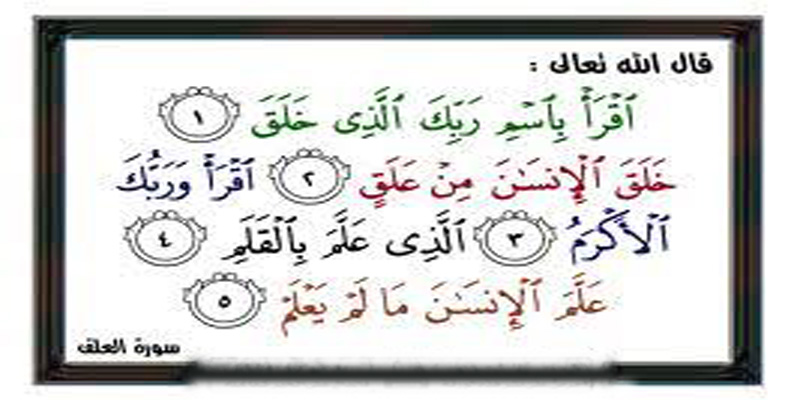 قال الله تعالى :
ٱقْرَأْ بِٱسْمِ رَبِّكَ ٱلَّذِى خَلَقَ ١
خَلَقَ ٱلْإِنسَٰنَ مِنْ عَلَقٍ ٢ ٱقْرَأْ وَرَبُّكَ
ٱلْأَكْرَمُ ٣ ٱلَّذِى عَلَّمَ بِٱلْقَلَمِ ٤
عَلَّمَ ٱلْإِنسَٰنَ مَا لَمْ يَعْلَمْ ٥
سورة العلق